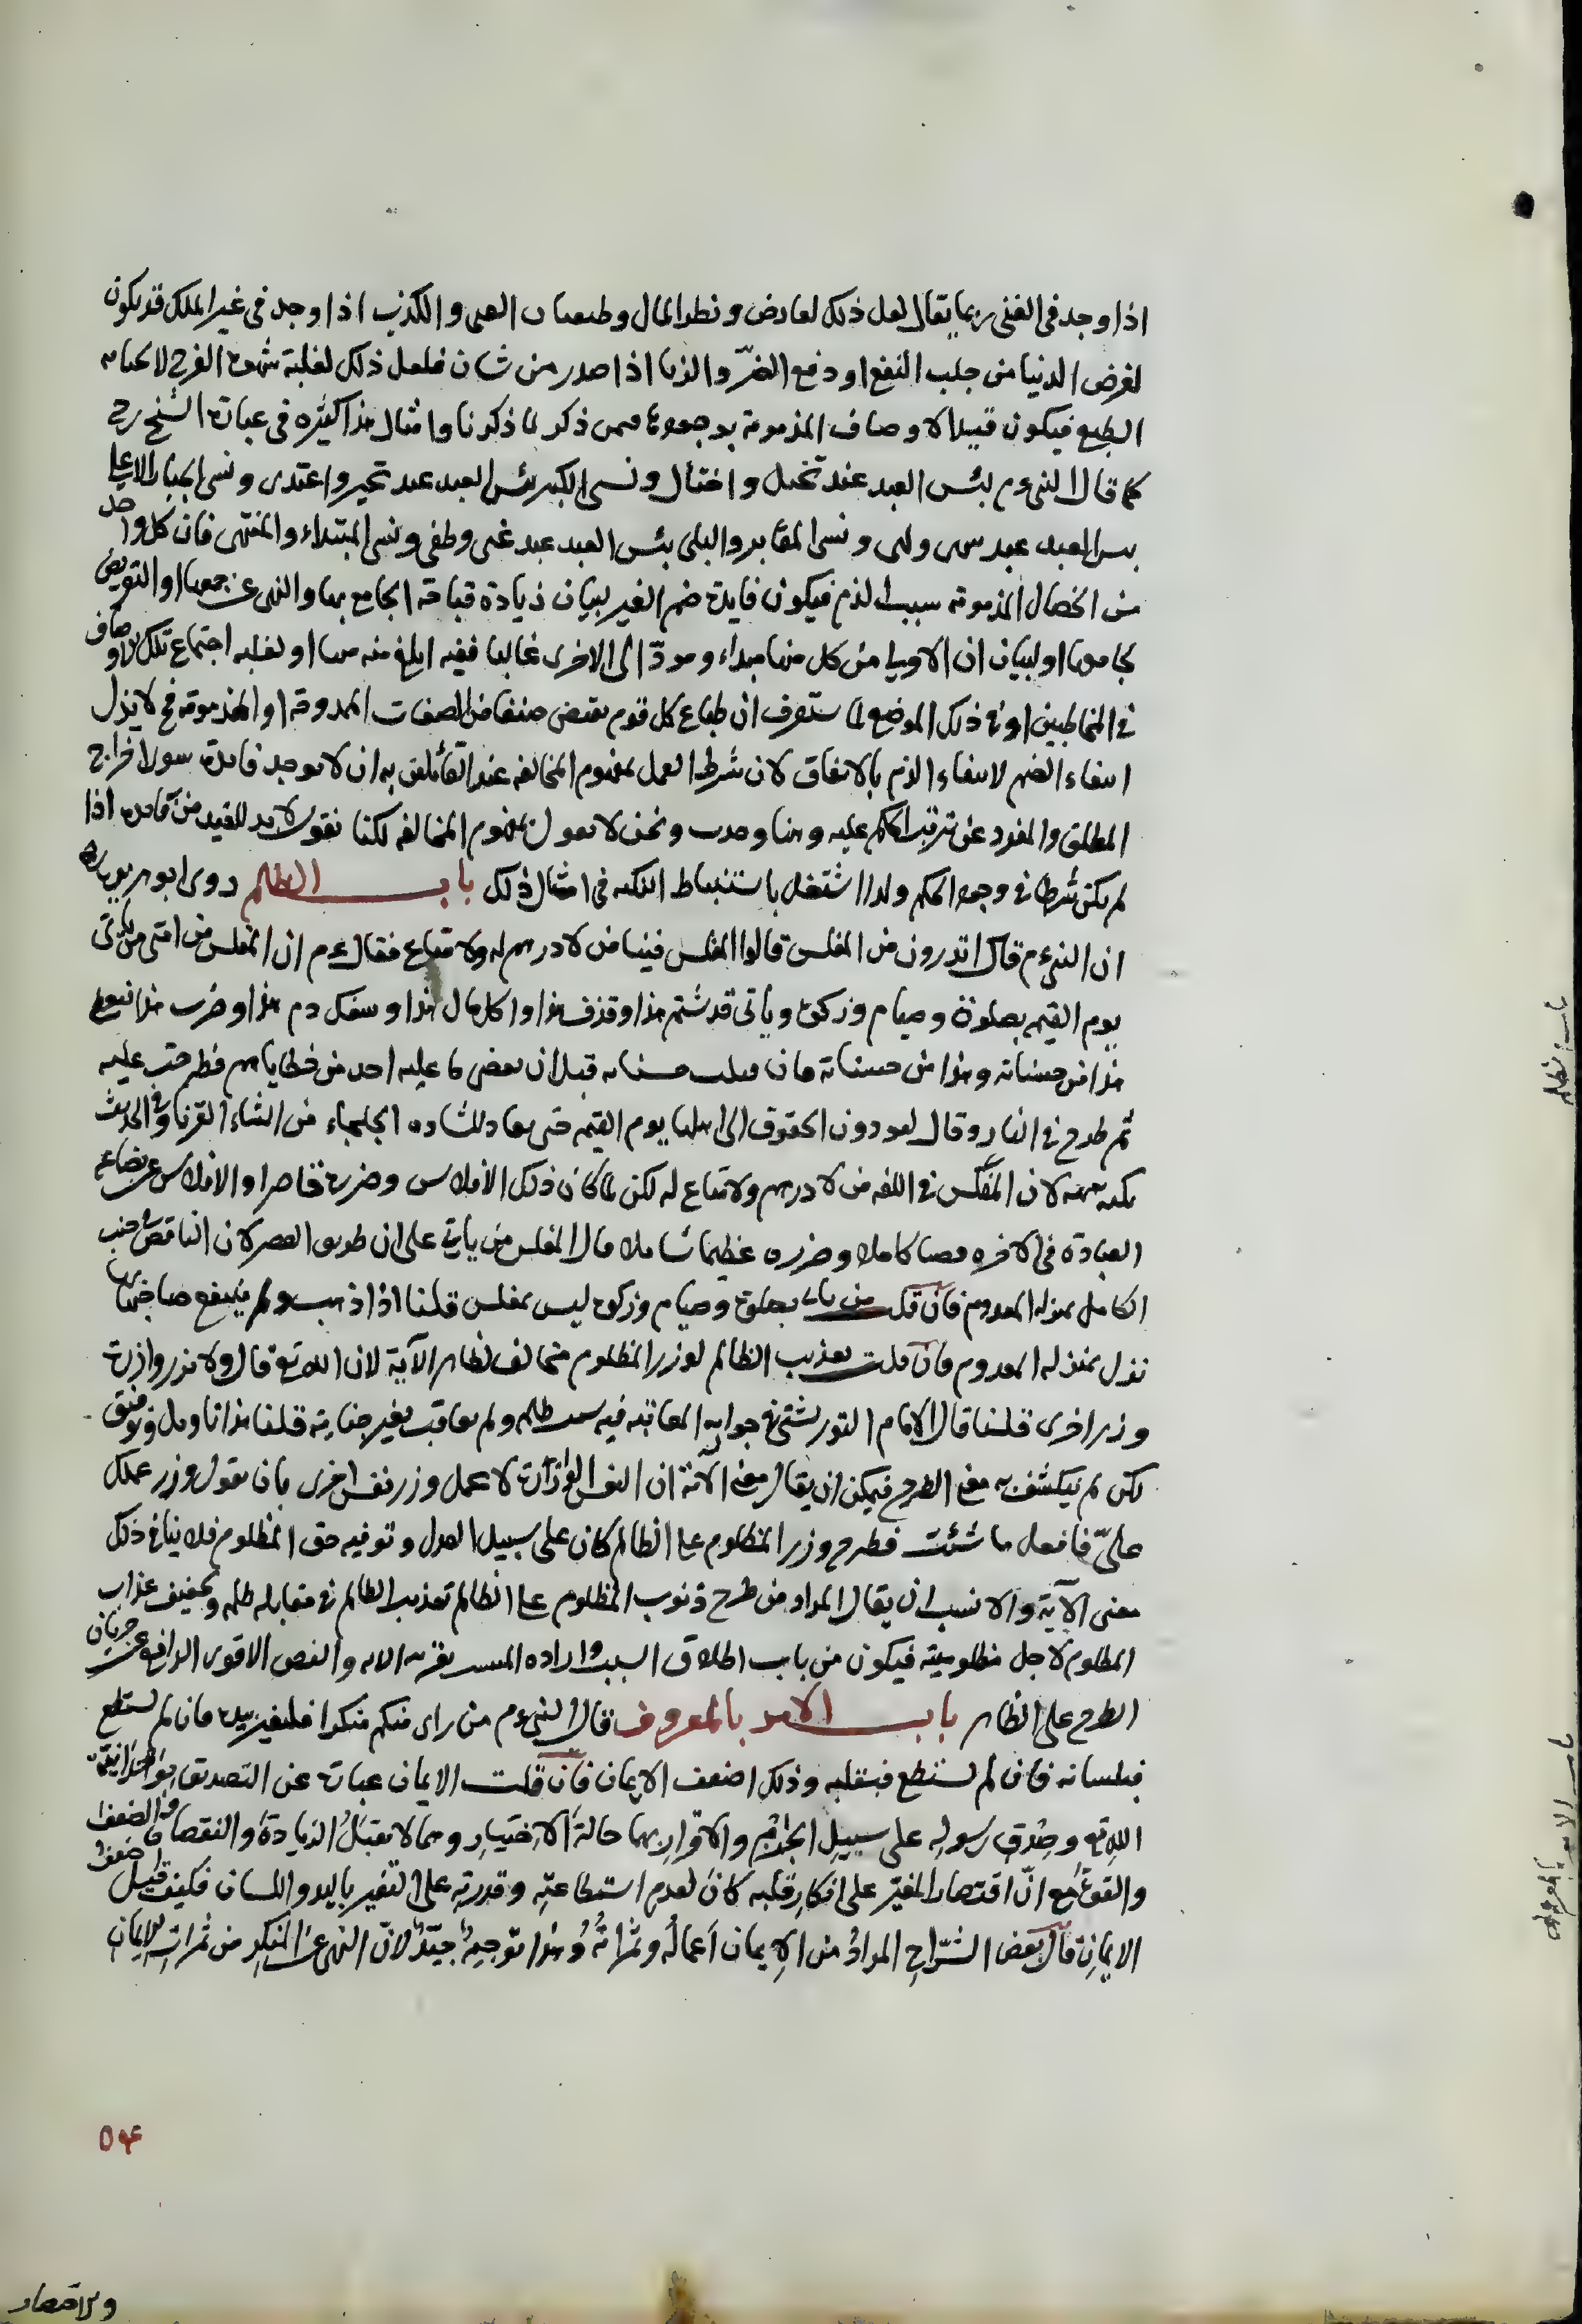 اذا وجد فى الغنى ربما يقال لعل ذلك لعارض و نظر المال و والكذب اذا وجد فى غير الملك قد يكون
لغرض الدنيا من جلب النفع او دفع الضرّ والزنا اذا صدر من شان فلعل ذلك لغلبة شهوة الفرج لا
الطبع فيكون قبيلا الاوصاف المذمومة ذكر لما ذكرنا وامثال هذا كثيره فى عبارة الشيخ رح
كما قال النبى ءم بئس العبد عبد تخيل و اختال و نسى الكبير بئس العبد عبد تجبر واعتدى و نسى الجبار الاعلى
العبد عبد سهى ولهى و نسى المقابر والبلى بئس العبد عبد عتى وطغى ونسى المبتداء والمنتهى فان كل واحد
من الخصال المذمومة سبب الذم فيكون فايدة ضم الغير لبيان زيادة قباحة الجامع بها والنهى عن جمعها او التعريض
بجامعها او لبيان ان الاوليا من كل منها مبداء و مودّ الى الاخرى غالبا ففيه ابلغ منه او لغلبه اجتماع تلك الاوصاف
فى المخاطبين او فى ذلك الموضع لما ستعرف ان طباع كل قوم يقتضى صنفا من الصفات الممدوحة او المذمومة فح لا يزل
انتفاء الضم لانتفاء الذم بالاتفاق لان شرط العمل بمفهوم المخالفه عند القائلين به ان لا يوجد فائدة سوى اخراج
المطلق والمفرد عن ترتب الحكم عليه و هنا وجدت ونحن لا نعول بمفهوم المخالفه لكنا نقول لابد للقيد من فائدة اذا
لم يكن شرطا فى وجود الحكم ولذا اشتغل باستنباط النكته فى امثال ذلك باب الظلم روى ابو هريرة رض
ان النبى ءم قال اتدرون من المفلس قالوا المفلس فينا من لا درهم له ولا متاع فقال ءم ان المفلس من امتى من ياتى
يوم القيمه بصلوة و صيام وزكوة وياتى قد شتم هذا وقذف هذا واكل مال هذا و سفك دم هذا وضرب هذا فيعطى
هذا من حسناته وهذا من حسناته فان فنيت حسناته قبل ان يقضى ما عليه اخذ من خطاياهم فطرحت عليه
ثم طرح فى النار وقال لتودون الحقوق الى اهلها يوم القيمه حتى يقاد للشاة الجلحاء من الشاء القرنا وفى الحديث
لان المفلس فى اللغه من لا درهم ولا متاع له لكن لما كان ذلك الافلاس وضرره خاصرا والافلاس عن بضاعة
العبادة فى الاخره كاملا و ضرره عظيما شاملا قال المفلس من ياتى على ان طريق القصر لان الناقص فى جنب
الكامل بمنزلة المعدوم فان قلت من ياتى بصلوة وصيام وزكوة ليس بمفلس قلنا اذا ذهب و لم ينتفع صاحبها
نزل بمنزلة المعدوم فان قلت تعذيب الظالم لوزر المظلوم مخالف لظاهر الآية لان الله تع قال ولا تزر وازرة
وزر اخرى قلنا قال الامام التوربشتى فى جوابه المعاتبه فيه بسبب ظلمه ولم يعاقب بغير جنايته قلنا هذا تاويل وتوفيق
لكن لم ينكشف به معنى الطرح فيمكن ان يقال معنى الآية ان النفس الوازرة لا تحمل وزر نفس اخرى بان يقول وزر عملك
علىّ فافعل ما شئت فطرح وزر المظلوم على الظالم كان على سبيل العدل و توفيه حق المظلوم فلا ينافى ذلك
معنى الآية والانسب ان يقال المراد من طرح ذنوب المظلوم على الظالم تعذيب الظالم فى مقابله ظلمه وتخفيف عذاب
المظلوم لاجل مظلوميته فيكون من باب اطلاق السبب واراده المسبب بقرينه الايه والنص الاقوى الدافع عن جريان
الطرح على الظاهر باب الامر بالمعروف قال النبى ءم من راى منكم منكرا فليغيره بيده فان لم يستطع
فبلسانه فان لم يستطع فبقلبه وذلك اضعف الايمان فان قلت الايمان عبارة عن التصديق بوحدانية
الله تع وصدق رسوله على سبيل الجزم والاقرار بهما حالة الاختيار و هما لا يقبل الزيادة والنقصان والضعف
والقوة مع انّ اقتصار المغيّر على انكار قلبه كان لعدم استطاعته وقدرته على التغير باليد واللسان فكيف قيل اضعف
الايمان قال بعض الشرّاح المراد من الايمان اعماله وثمراته وهذا توجيه جيّد لانّ النهى عن المنكر من ثمرات الايمان
باب الظلم
باب الامر بالمعروف
٥٤
والاقتصار